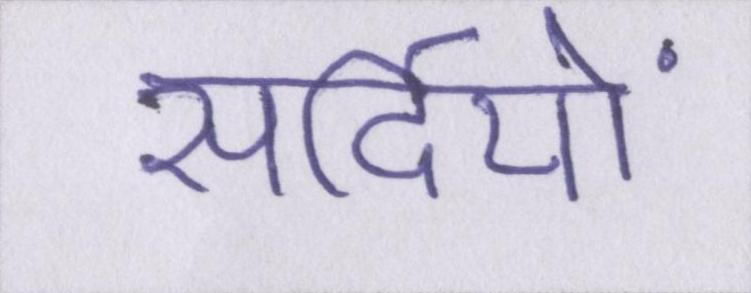 सर्दियों